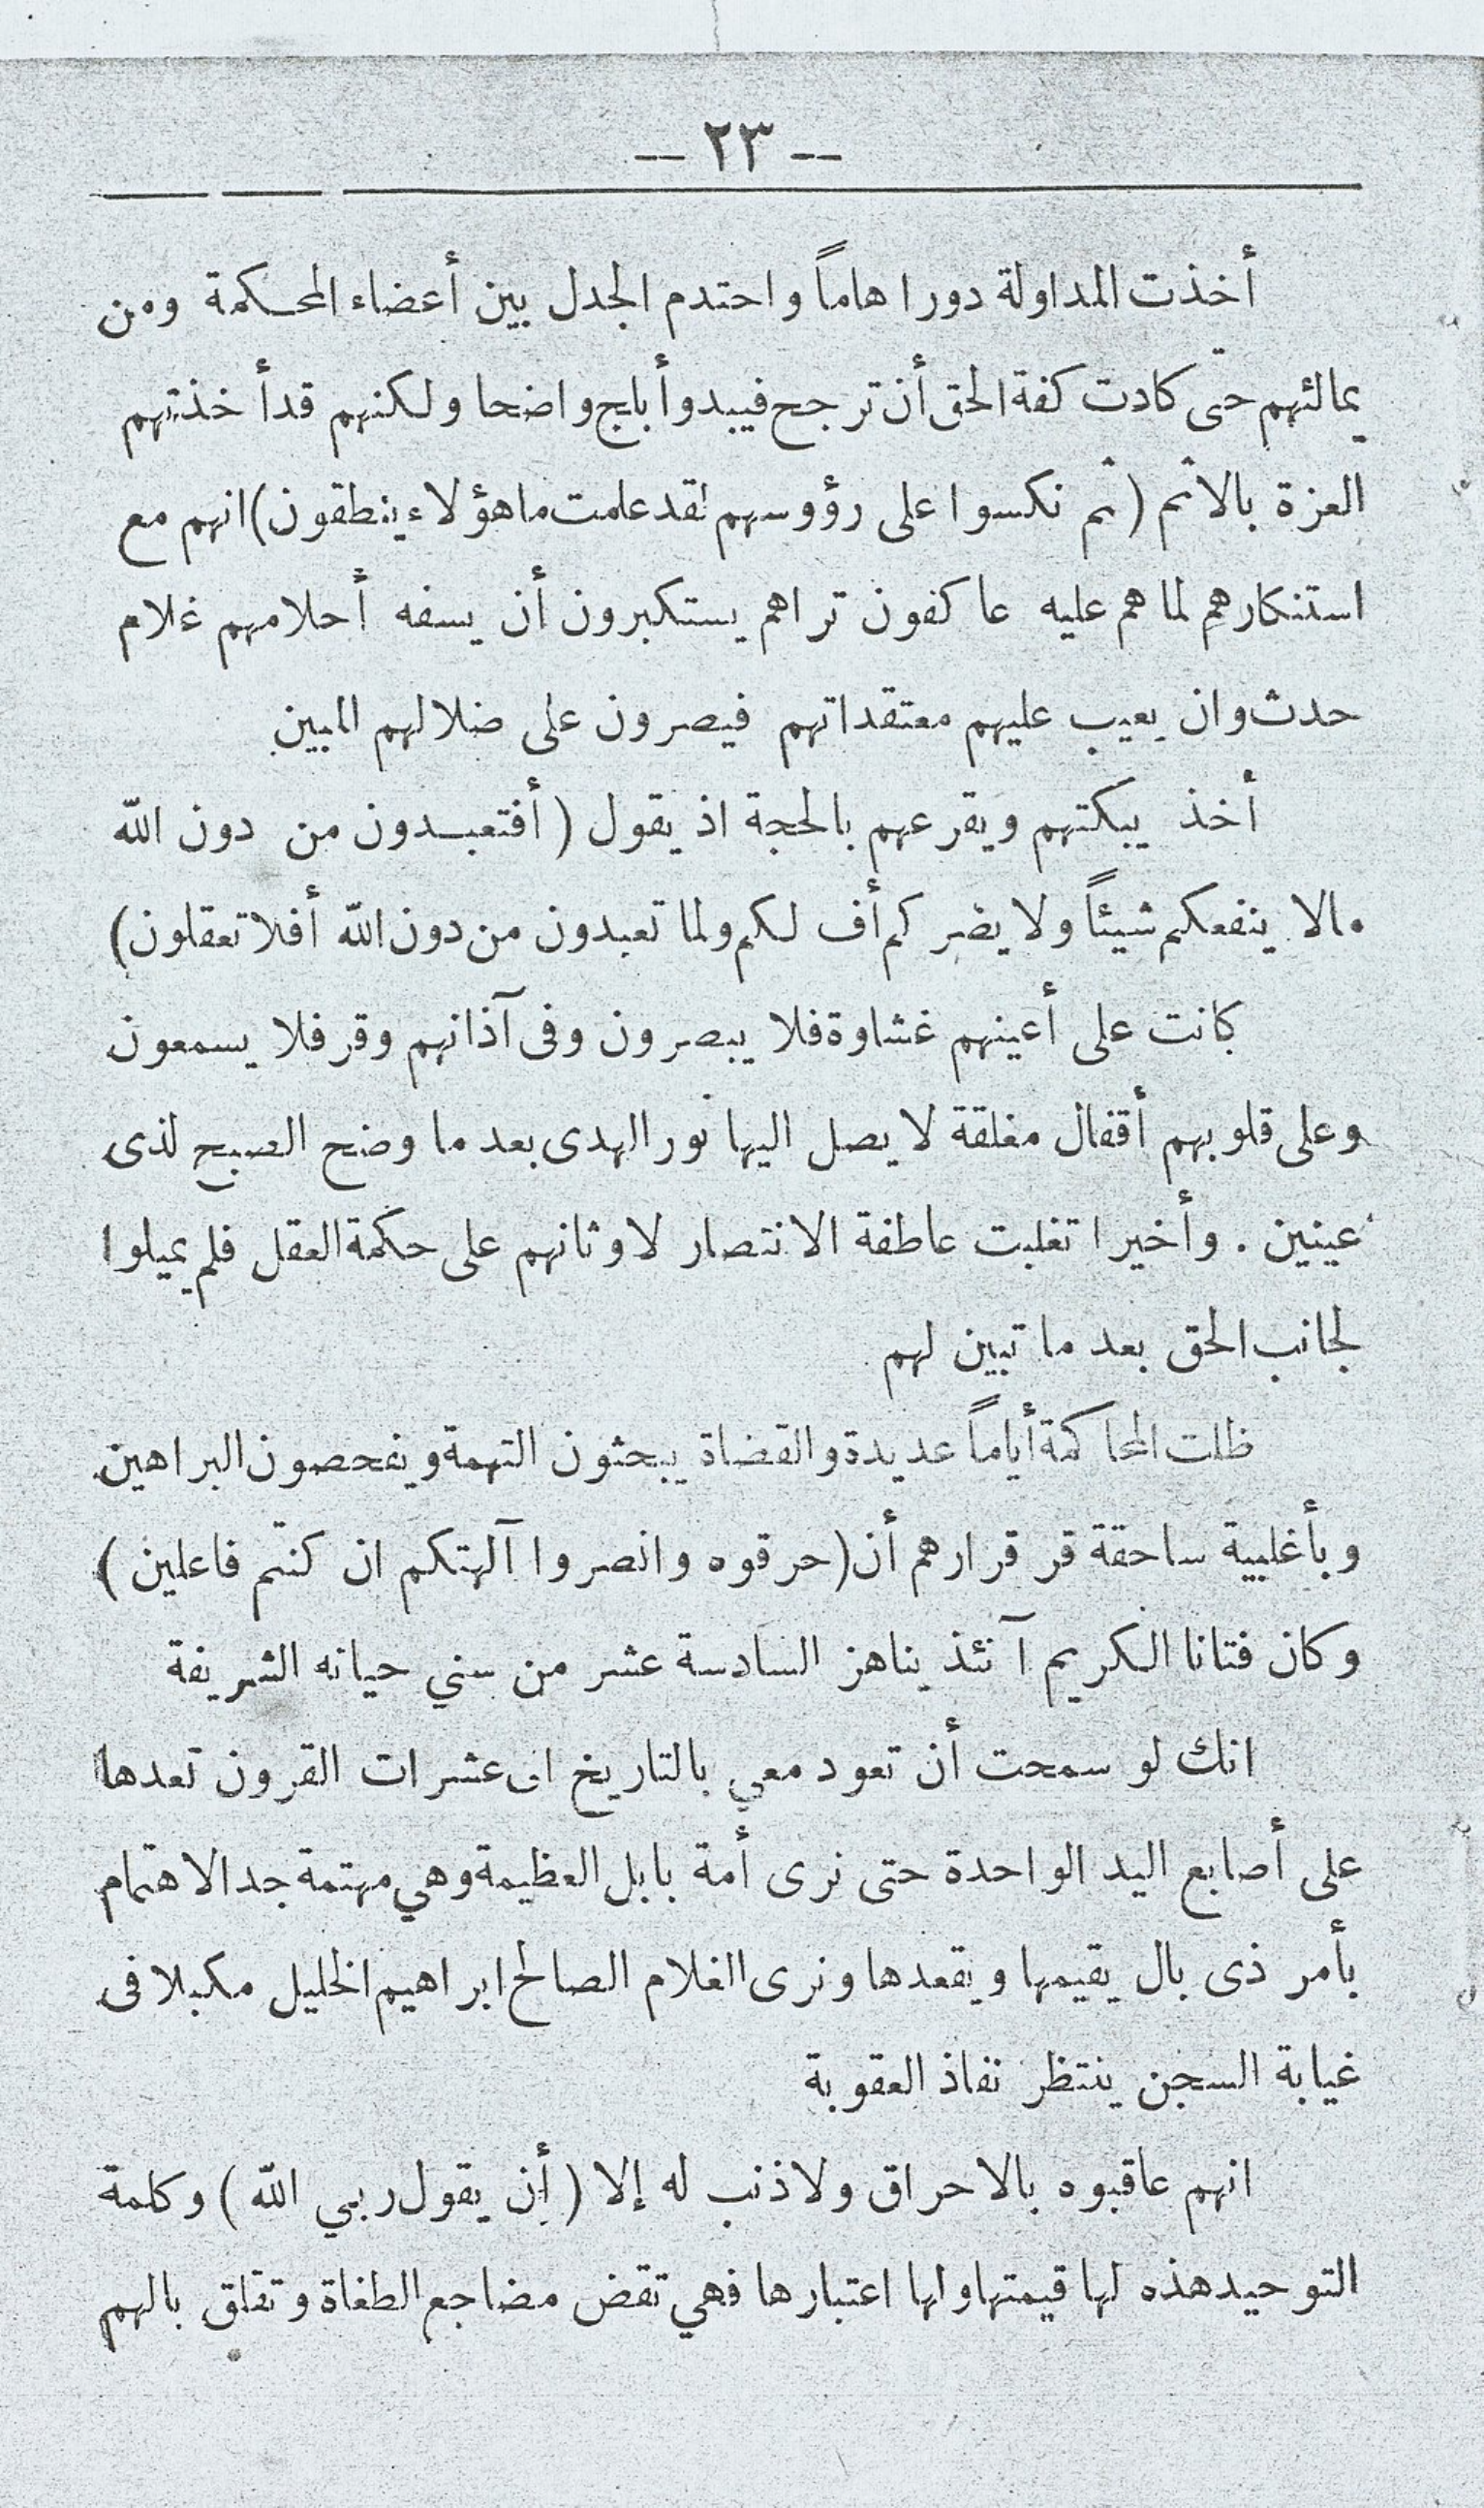 -- ٢٣ --
أخذت المداولة دورا هاماً واحتدم الجدل بين أعضاء المحكمة ومن
يمالئهم حتى كادت كفة الحق أن ترجح فيبدو أبلج واضحا ولكنهم قد أخذتهم
العزة بالاثم ( ثم نكسوا على رؤوسهم لقد علمت ما هؤلاء ينطقون ) انهم مع
استنكارهم لما هم عليه عاكفون تراهم يستكبرون أن يسفه أحلامهم غلام
حدث وان يعيب عليهم معتقداتهم فيصرون على ضلالهم المبين
أخذ يبكتهم ويقرعهم بالحجة اذ يقول ( أفتعبدون من دون الله
مالا ينفعكم شيئاً ولا يضركم أف لكم ولما تعبدون من دون الله أفلا تعقلون )
كانت على أعينهم غشاوة فلا يبصرون وفى آذانهم وقر فلا يسمعون
وعلى قلوبهم أقفال مغلقة لا يصل اليها نور الهدى بعد ما وضح الصبح لذى
عينين . وأخيرا تغلبت عاطفة الانتصار لاوثانهم على حكمة العقل فلم يميلوا
لجانب الحق بعد ما تبين لهم
ظلت المحاكمة أياماً عديدة والقضاة يبحثون التهمة ويفحصون البراهين
وبأغلبية ساحقة قر قرارهم أن ( حرقوه وانصروا آلهتكم ان كنتم فاعلين )
وكان فتانا الكريم آنئذ يناهز السادسة عشر من سني حياته الشريفة
انك لو سمحت أن تعود معي بالتاريخ الى عشرات القرون تعدها
على أصابع اليد الواحدة حتى نرى أمة بابل العظيمة وهي مهتمة جد الاهتمام
بأمر ذى بال يقيمها ويقعدها ونرى الغلام الصالح ابراهيم الخليل مكبلا فى
غيابة السجن ينتظر نفاذ العقوبة
انهم عاقبوه بالاحراق ولا ذنب له إلا ( أن يقول ربي الله ) وكلمة
التوحيد هذه لها قيمتها ولها اعتبارها فهي تقض مضاجع الطغاة وتقلق بالهم